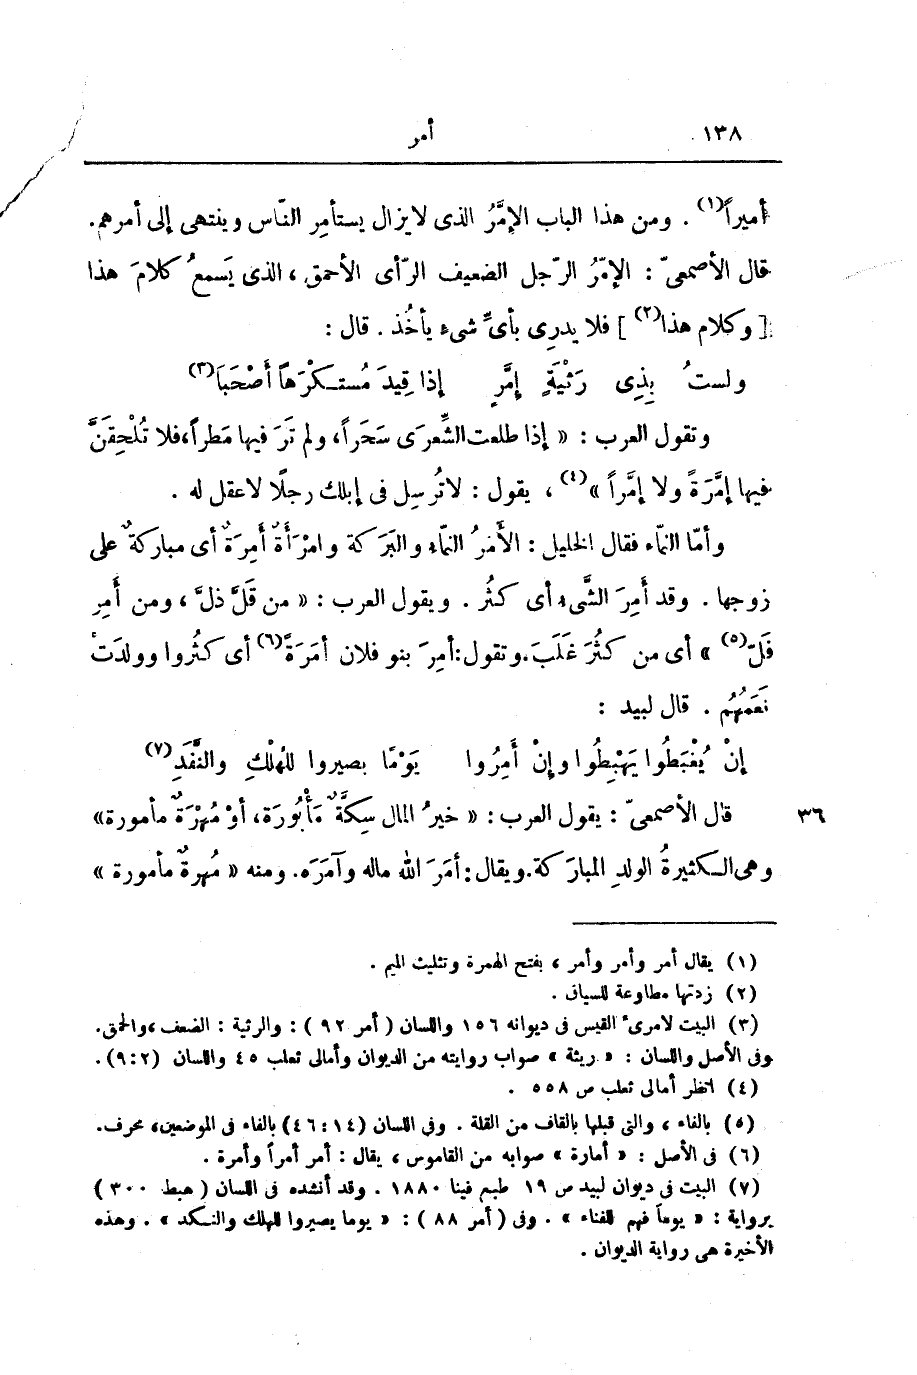 ١٣٨ أمر
أميراً(١) . ومن هذا الباب الإمَّرُ الذى لايزال يستأمِر النّاس وينتهى إلى أمرهم.
قال الأصمعىّ : الإمّرُ الرّجل الضعيف الرّأى الأحمق ، الذى يَسمعُ كلامَ هذا
[ وكلام هذا(٢) ] فلا يدرِى بأىِّ شىءٍ يأخُذ . قال :
ولستُ بِذِى رَثْيَةٍ إمَّرٍ إذا قِيدَ مُستكْرَهاً أَصْحَبَا(٣)
وتقول العرب : « إذا طلعت الشِّعرَى سَحَراً، ولم تَرَ فيها مَطراً، فلا تُلْحِقَنَّ
فيها إمَّرَةً ولا إمَّراً »(٤) ، يقول : لاتُرسِل فى إبلك رجلًا لاعقل له .
وأمّا النّماء فقال الخليل : الأَمَرُ النّماء والبَرَكة وامْرَأَةٌ أَمِرَةٌ أى مباركةٌ على
زوجها . وقد أَمِرَ الشَّىء أى كثُر . ويقول العرب : « من قَلَّ ذلَّ ، ومن أَمِر
فَلّ(٥) » أى من كثُرَ غَلَبَ. وتقول: أمِرَ بنو فلان أمَرَةً(٦) أى كثُروا وولدَتْ
نَعَمُهُم . قال لبيد :
إنْ يُغْبَطُوا يَهْبِطُوا وإنْ أَمِرُوا يَوْمًا يصيروا للهُلْكِ والنَّفَدِ(٧)
٣٦ قال الأصمعىّ : يقول العرب : « خيرُ المال سِكَّةٌ مَأْبُورَة، أوْ مُهْرَةٌ مأمورة»
وهى الكثيرةُ الولدِ المبارَكة. ويقال: أمَرَ اللّه ماله وآمَرَه. ومنه « مُهرةٌ مأمورة »
(١) يقال أمر وأمر وأمر ، بفتح الهمزة وتثليث الميم .
(٢) زدتها مطاوعة للسياق .
(٣) البيت لامرىء القيس فى ديوانه ١٥٦ واللسان ( أمر ٩٢ ) : والرثية : الضعف، والحمق.
وفى الأصل واللسان : « ريثة » صواب روايته من الديوان وأمالى ثعلب ٤٥ واللسان (٩:٢) .
(٤) انظر أمالى ثعلب ص ٥٥٨ .
(٥) بالفاء ، والتى قبلها بالقاف من القلة . وفى اللسان (٤٦:١٤) بالفاء فى الموضعين، محرف.
(٦) فى الأصل : « أمارة » صوابه من القاموس ، يقال : أمر أمراً وأمرة .
(٧) البيت فى ديوان لبيد ص ١٩ طبع فينا ١٨٨٠ . وقد أنشده فى اللسان ( هبط ٣٠٠ )
برواية : « يوماً فهم للفناء » . وفى ( أمر ٨٨ ) : « يوما يصيروا للهلك والنكد » . وهذه
الأخيرة هى رواية الديوان .